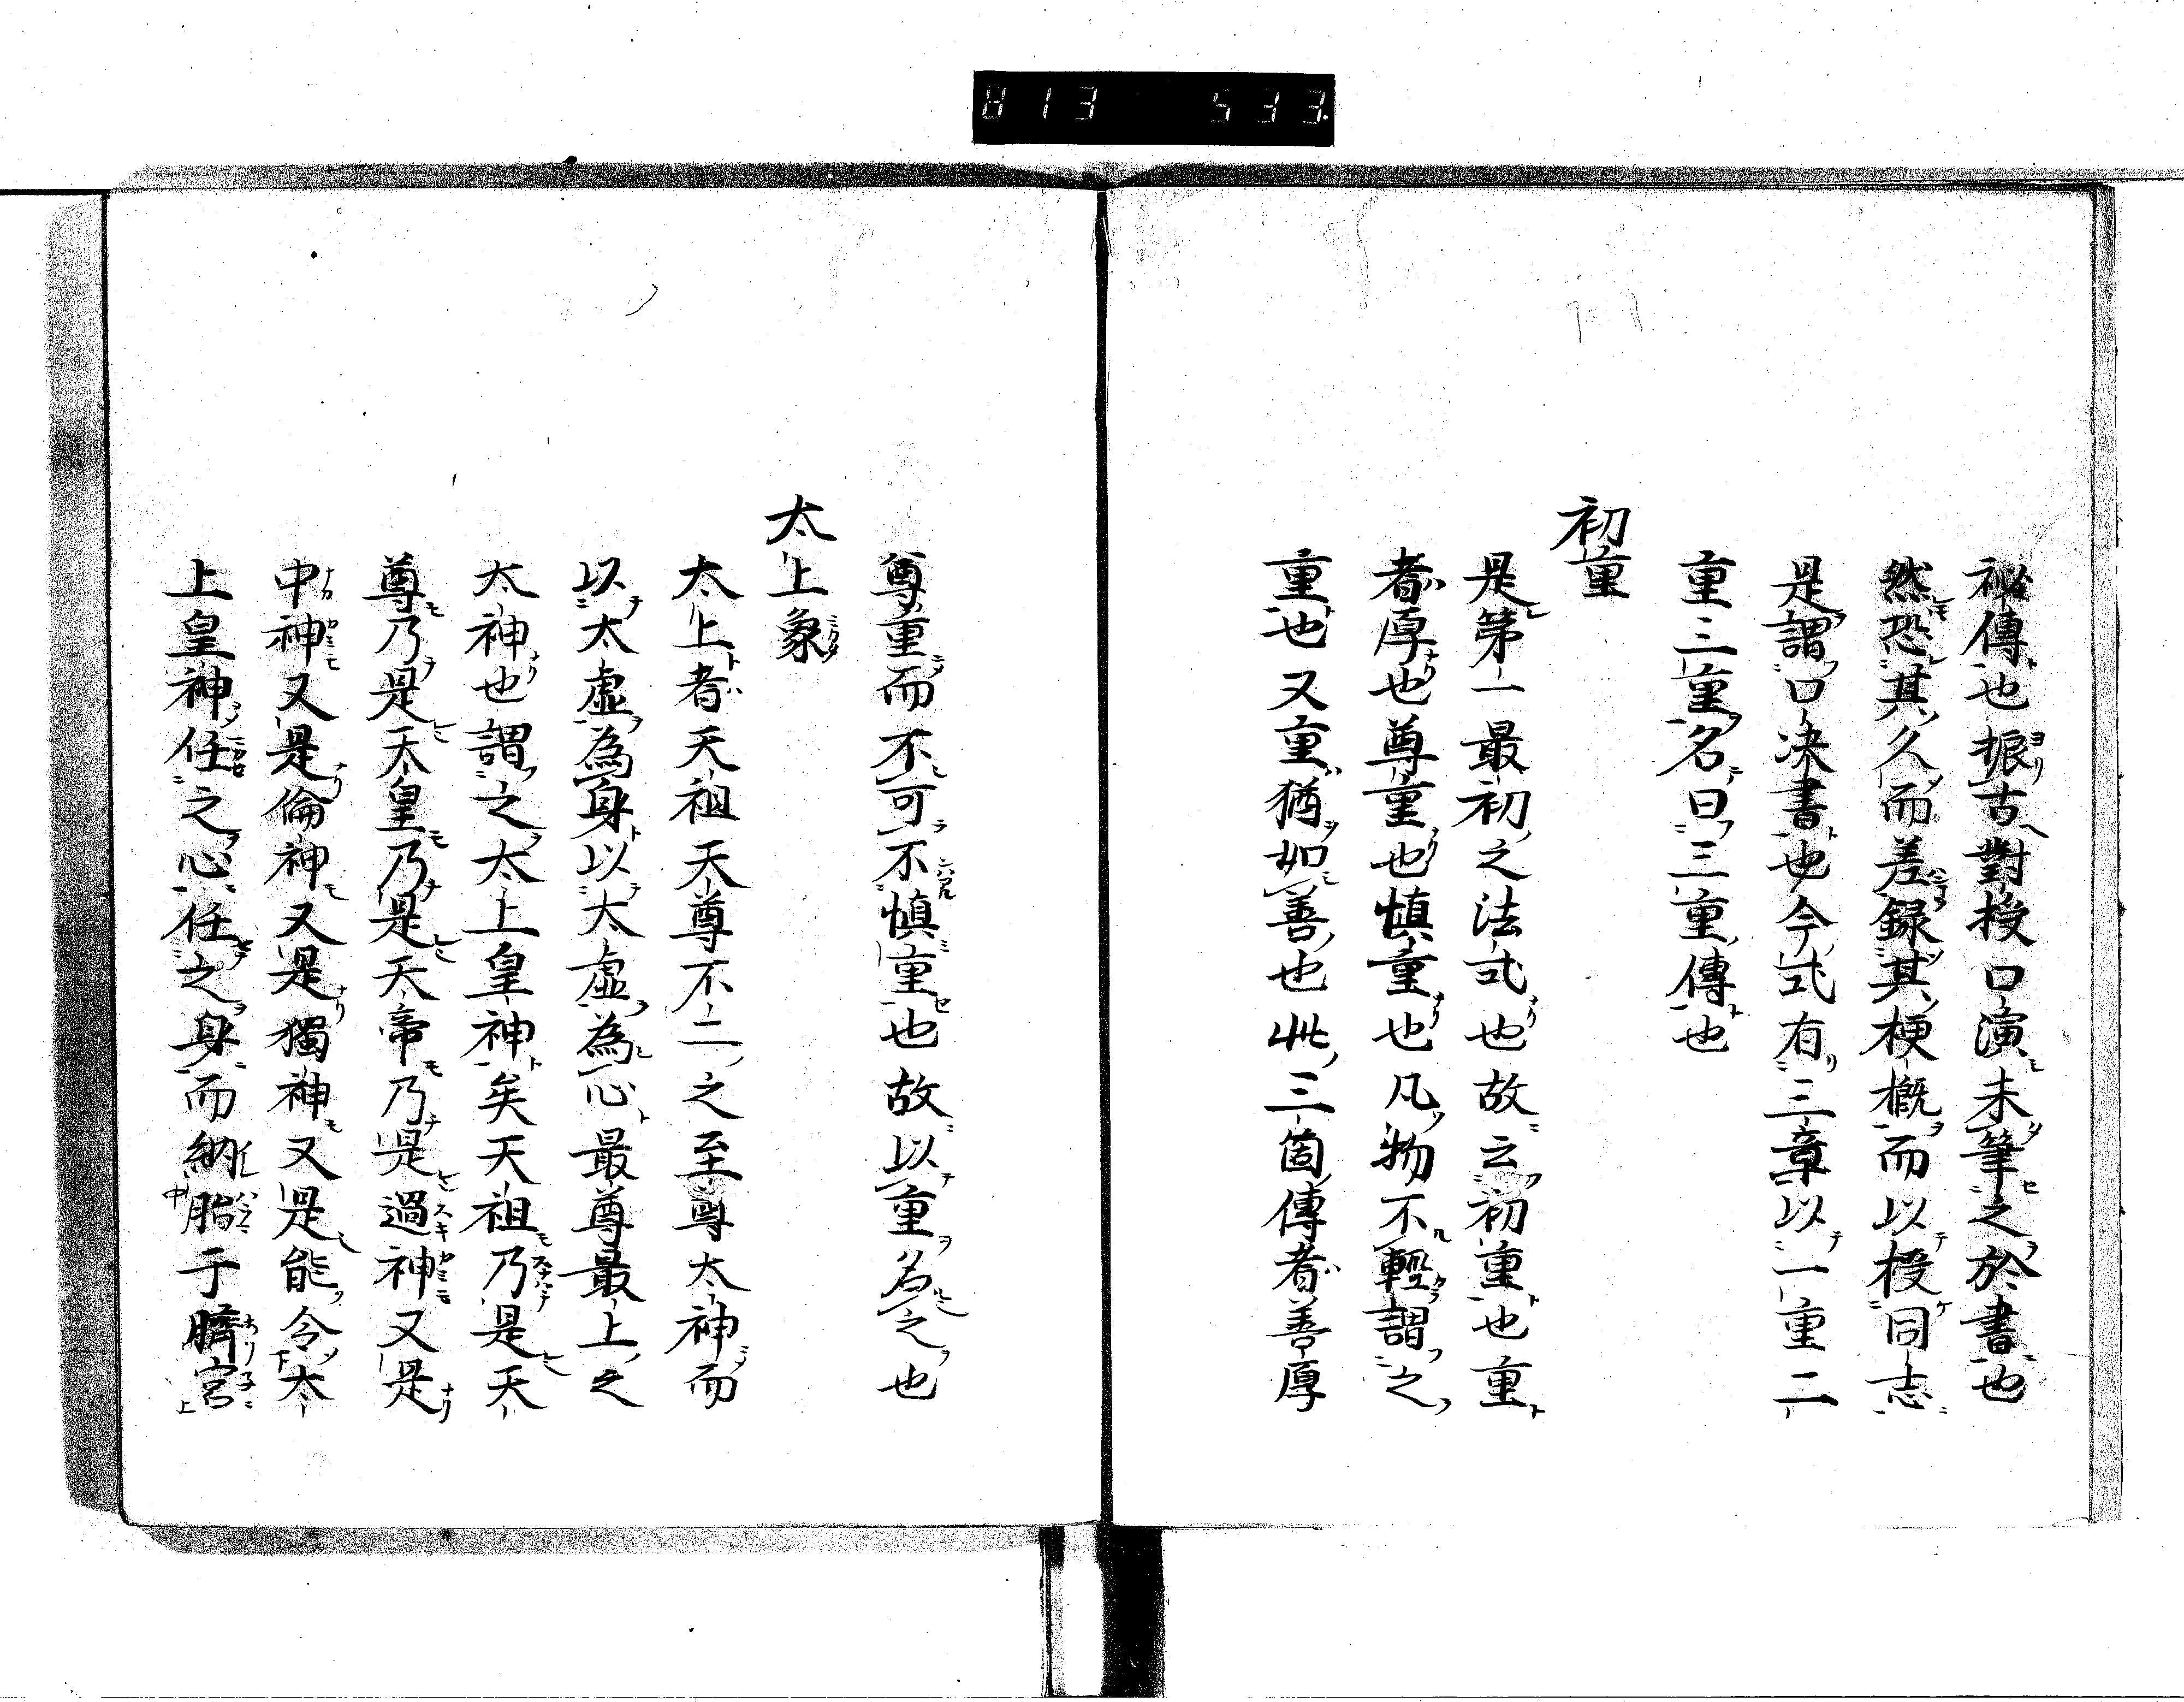 813 533
秘傳也振古對授口演未筆之於書也
然恐其久而差録其梗概而以授同志
是謂口决書也今式有三章以一重二
重三重名曰三重傳也
初重
是第一最初之法式也故云初重也重
者厚也尊重也慎重也凡物不輕謂之
重也又重猶如善也此三箇傳者善厚
尊重而不可不慎重也故以重名之也
太上象
太上者天祖天尊不二之至尊太神而
以太虚為身以太虚為心最尊最上之
太神也謂之太上皇神矣天祖乃是天
尊乃是天皇乃是天帝乃是過神又是
中神又是倫神又是獨神又是能令太
上皇神任之心任之身而納胎于臍宮